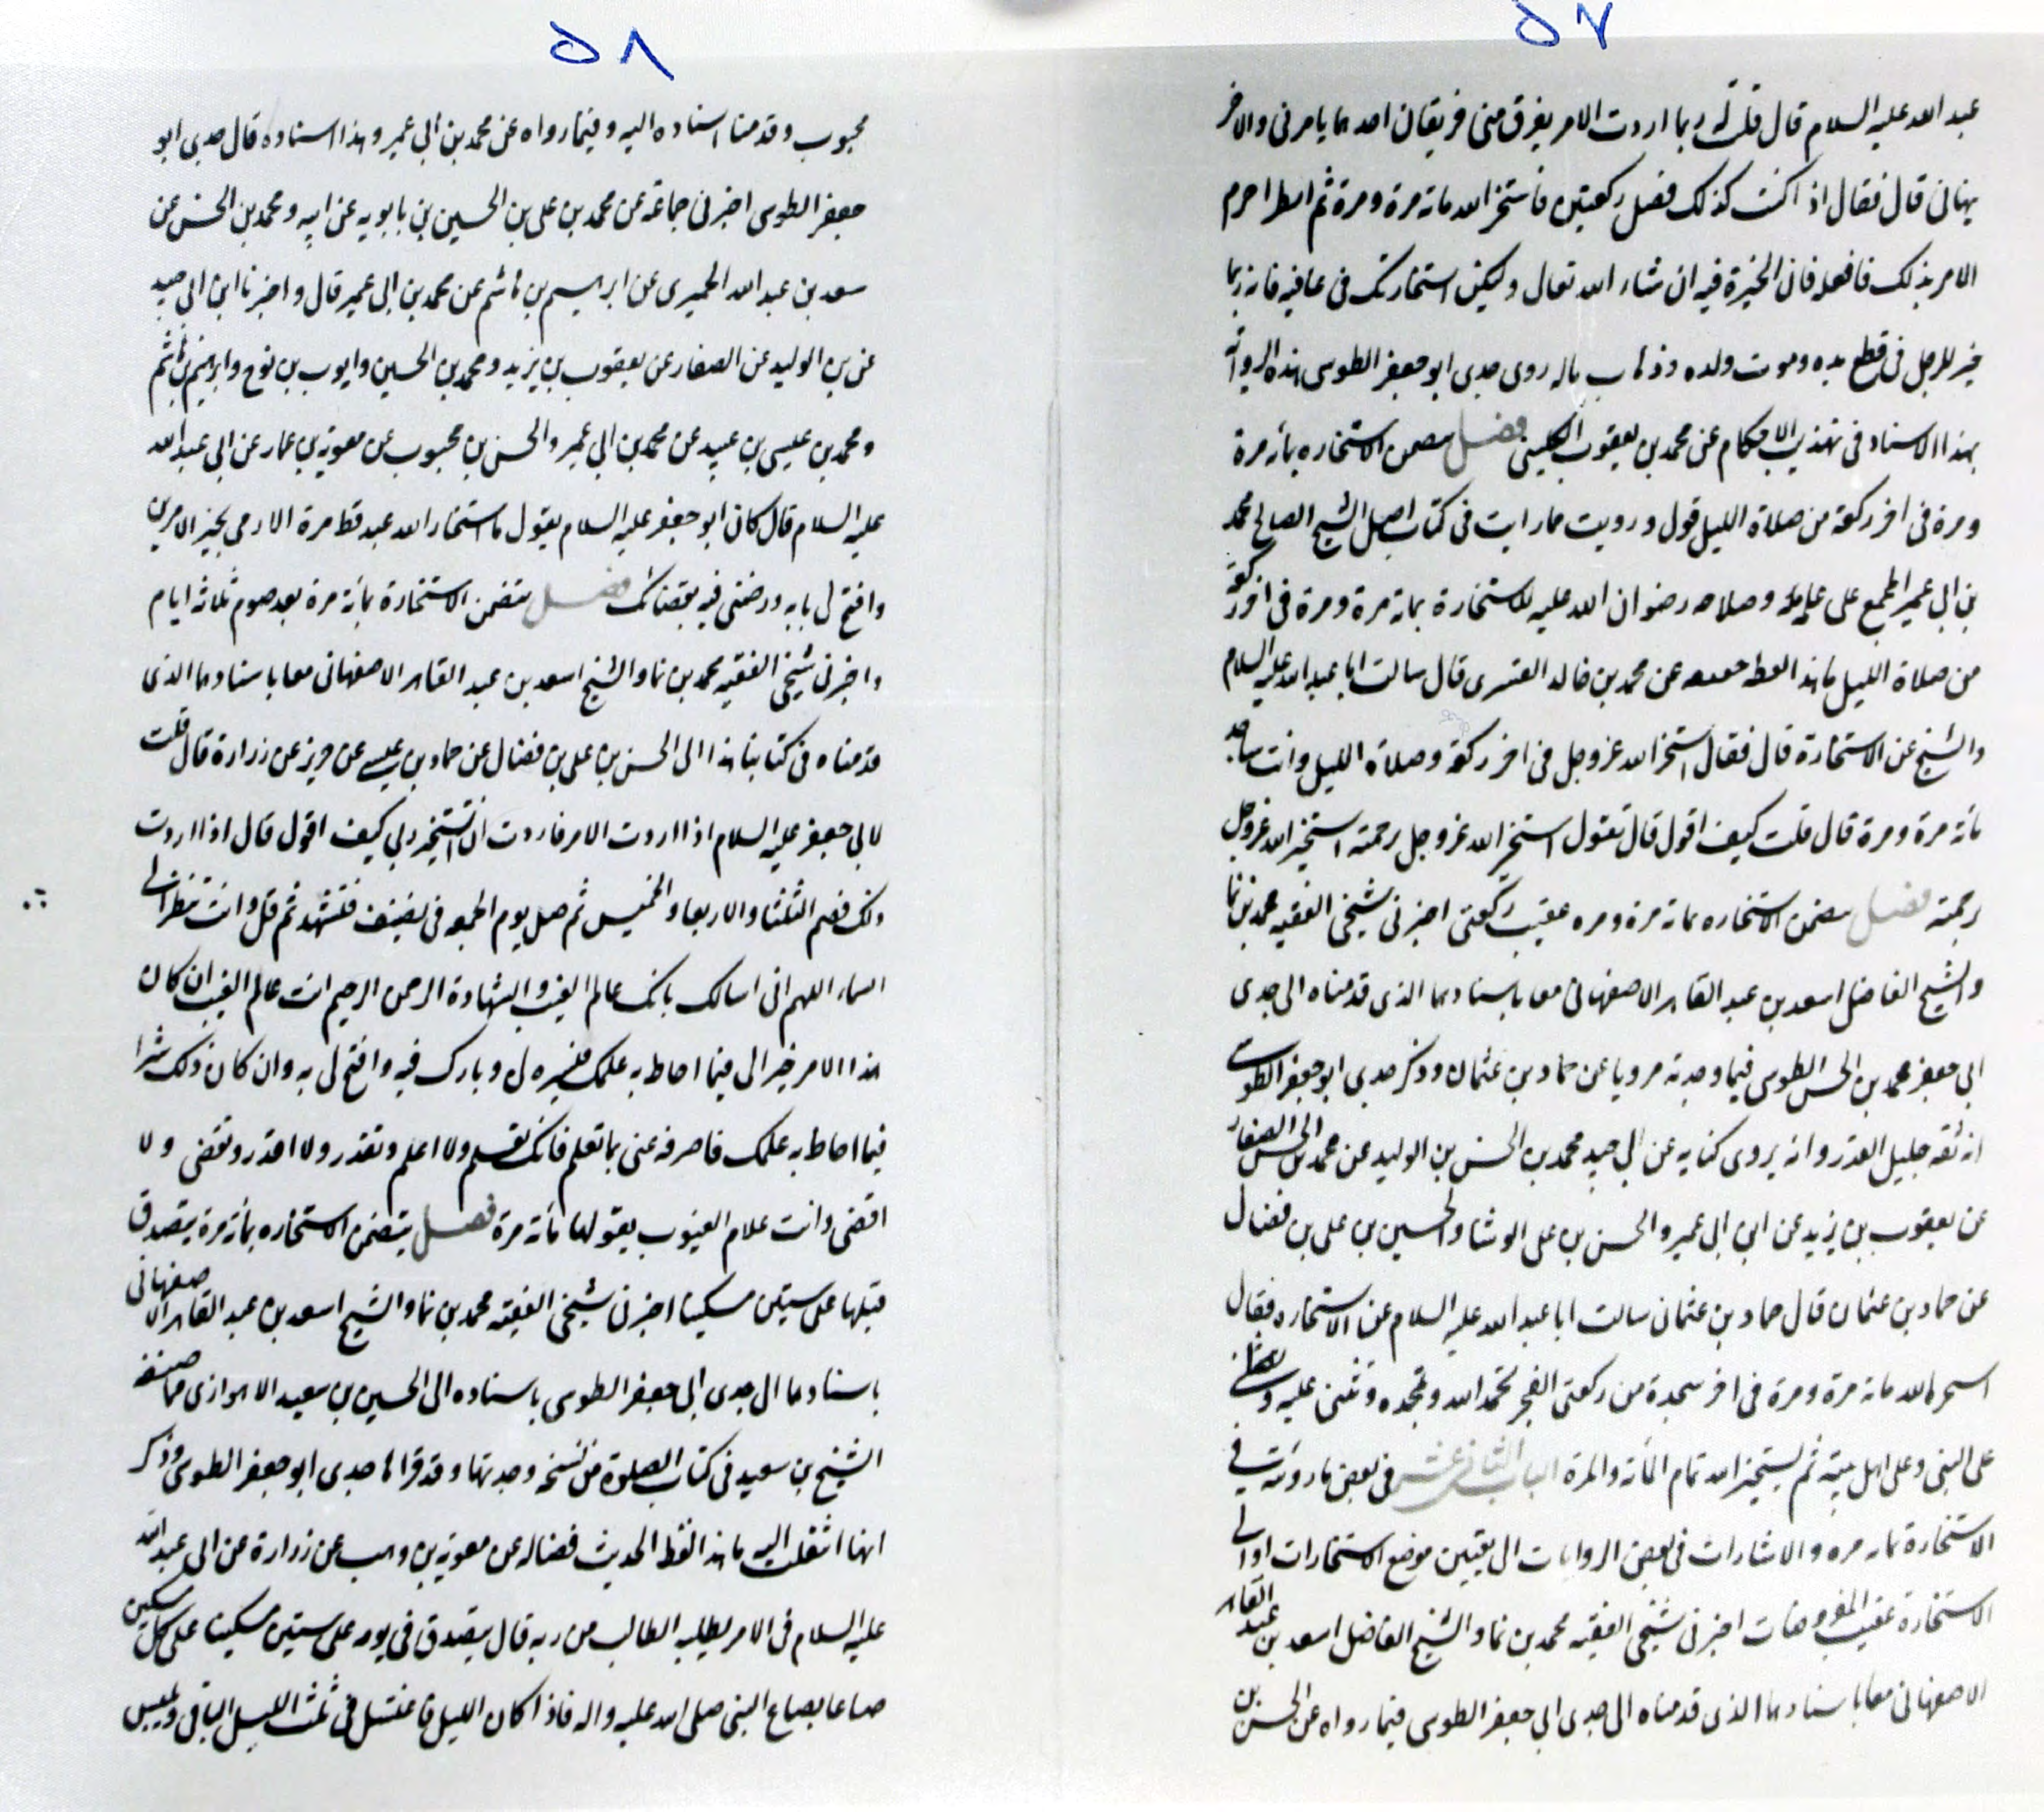 ٥٧
عبد الله عليه السلام قال قلت له ربما اردت الامر يفرق منى فريقان احدهما يامرنى والاخر
ينهانى قال فقال اذا كنت كذلك فصل ركعتين فاستخر الله مائة مرة ومرة ثم انظر احزم
الامرين لك فافعله فان الخيرة فيه ان شاء الله تعالى وليكن استخارتك فى عافيه فانه ربما
خير للرجل فى قطع يده وموت ولده وذهاب ماله روى جدى ابو جعفر الطوسى هذه الرواية
بهذا الاسناد فى تهذيب الاحكام عن محمد بن يعقوب الكلينى فصل يتضمن الاستخاره بمائة مرة
ومرة فى اخر ركعة من صلاة الليل قول ورويت مما رايت فى كتاب اصل الشيخ الصالح محمد
بن ابى عمير المجمع على علمه وصلاحه رضوان الله عليه للاستخارة بمائة مرة ومرة فى اخر ركعة
من صلاة الليل ما هذا لفظه عن محمد بن خالد القسرى قال سالت ابا عبد الله عليه السلام
والشيخ عن الاستخارة قال فقال استخر الله عز وجل فى اخر ركعة وصلاة الليل وانت ساجد
مائة مرة ومرة قال قلت كيف اقول قال تقول استخير الله عز وجل برحمته استخير الله عز وجل
برحمته فصل يتضمن الاستخاره بمائة مرة ومره عقيب ركعتى اخبرنى شيخى الفقيه محمد بن نما
والشيخ الفاضل اسعد بن عبد القاهر الاصفهانى معا باسنادهما الذى قدمناه الى جدى
ابى جعفر محمد بن الحسن الطوسى فيما وجدته مرويا عن حماد بن عثمان وذكر جدى ابو جعفر الطوسى
انه ثقه جليل القدر وانه يروى كتابه عن ابى جيد محمد بن الحسن بن الوليد عن محمد بن الحسن الصفار
عن يعقوب بن يزيد عن ابن ابى عمير والحسن بن على الوشا والحسين بن على بن فضال
عن حماد بن عثمان قال حماد بن عثمان سالت ابا عبد الله عليه السلام عن الاستخاره فقال
الله مائة مرة ومرة فى اخر سجدة من ركعتى الفجر تحمد الله وتمجده وتثنى عليه
على النبى وعلى اهل بيته ثم يستخير الله تمام المائة والمرة الباب الثانى عشر فى بعض ما رويته فى
الاستخارة بمائة مره والاشارات فى بعض الروايات الى تعيين موضع الاستخارات او الى
الاستخارة عقيب المفروضات اخبرنى شيخى الفقيه محمد بن نما والشيخ الفاضل اسعد بن عبد القاهر
الاصفهانى معا باسنادهما الذى قدمناه الى جدى ابى جعفر الطوسى فيما رواه عن الحسن بن
٥٨
محبوب وقد قدمنا اسناده اليه وفيما رواه عن محمد بن ابى عمير وهذا اسناده قال جدى ابو
جعفر الطوسى اخبرنى جماعة عن محمد بن على بن الحسين بن بابويه عن ابيه ومحمد بن الحسن عن
سعد بن عبد الله الحميرى عن ابرهيم بن هاشم عن محمد بن ابى عمير قال واخبرنا ابن ابى جيد
عن بن الوليد عن الصفار عن يعقوب بن يزيد ومحمد بن الحسين وايوب بن نوح وابرهيم بن هاشم
ومحمد بن عيسى بن عبيد عن محمد بن ابى عمير والحسن بن محبوب عن معوية بن عمار عن ابى عبد الله
عليه السلام قال كان ابو جعفر عليه السلام يقول ما استخار الله عبد قط مرة الا رمى بخير الامرين
وافتح لى بابه ورضنى فيه بقضائك فصل يتضمن الاستخارة بمائة مرة بعد صوم ثلاثه ايام
واخبرنى شيخى الفقيه محمد بن نما والشيخ اسعد بن عبد القاهر الاصفهانى معا باسنادهما الذى
قدمناه فى كتابنا هذا الى الحسن بن على بن فضال عن حماد بن عيسى عن حريز عن زرارة قال قلت
لابى جعفر عليه السلام اذا اردت الامر فاردت ان استخير ربى كيف اقول قال اذا اردت
ذلك فصم الثلثا والاربعا والخميس ثم صل يوم الجمعه فى نضيف فتشهد ثم قل وانت تنظر الى
السماء اللهم انى اسالك بانك عالم الغيب والشهادة الرحمن الرحيم انت عالم الغيب ان كان
هذا الامر خير الى فيما احاط به علمك فيسره لى وبارك فيه وافتح لى به وان كان ذلك شرا
فيما احاط به علمك فاصرفه عنى بما تعلم فانك تعلم ولا اعلم وتقدر ولا اقدر وتقضى ولا
اقضى وانت علام الغيوب يقولها مائة مرة فصل يتضمن الاستخاره بمائة مرة يتصدق
قبلها على ستين مسكينا اخبرنى شيخى الفقيه محمد بن نما والشيخ اسعد بن عبد القاهر الاصفهانى
باسنادهما الى جدى ابى جعفر الطوسى باسناده الى الحسين بن سعيد الاهوازى مما صنفه
الشيخ بن سعيد فى كتاب الصلوة من نسخه وجدتها وقد قراها جدى ابو جعفر الطوسى وذكر
انها انتقلت اليه ما هذا لفظ الحديث فضاله عن معوية بن وهب عن زرارة عن ابى عبد الله
عليه السلام فى الامر يطلبه الطالب من ربه قال يتصدق فى يومه على ستين مسكينا على كل مسكين
صاعا بصاع النبى صلى الله عليه واله فاذا كان الليل فاغتسل فى ثلث الليل الباقى ويلبس